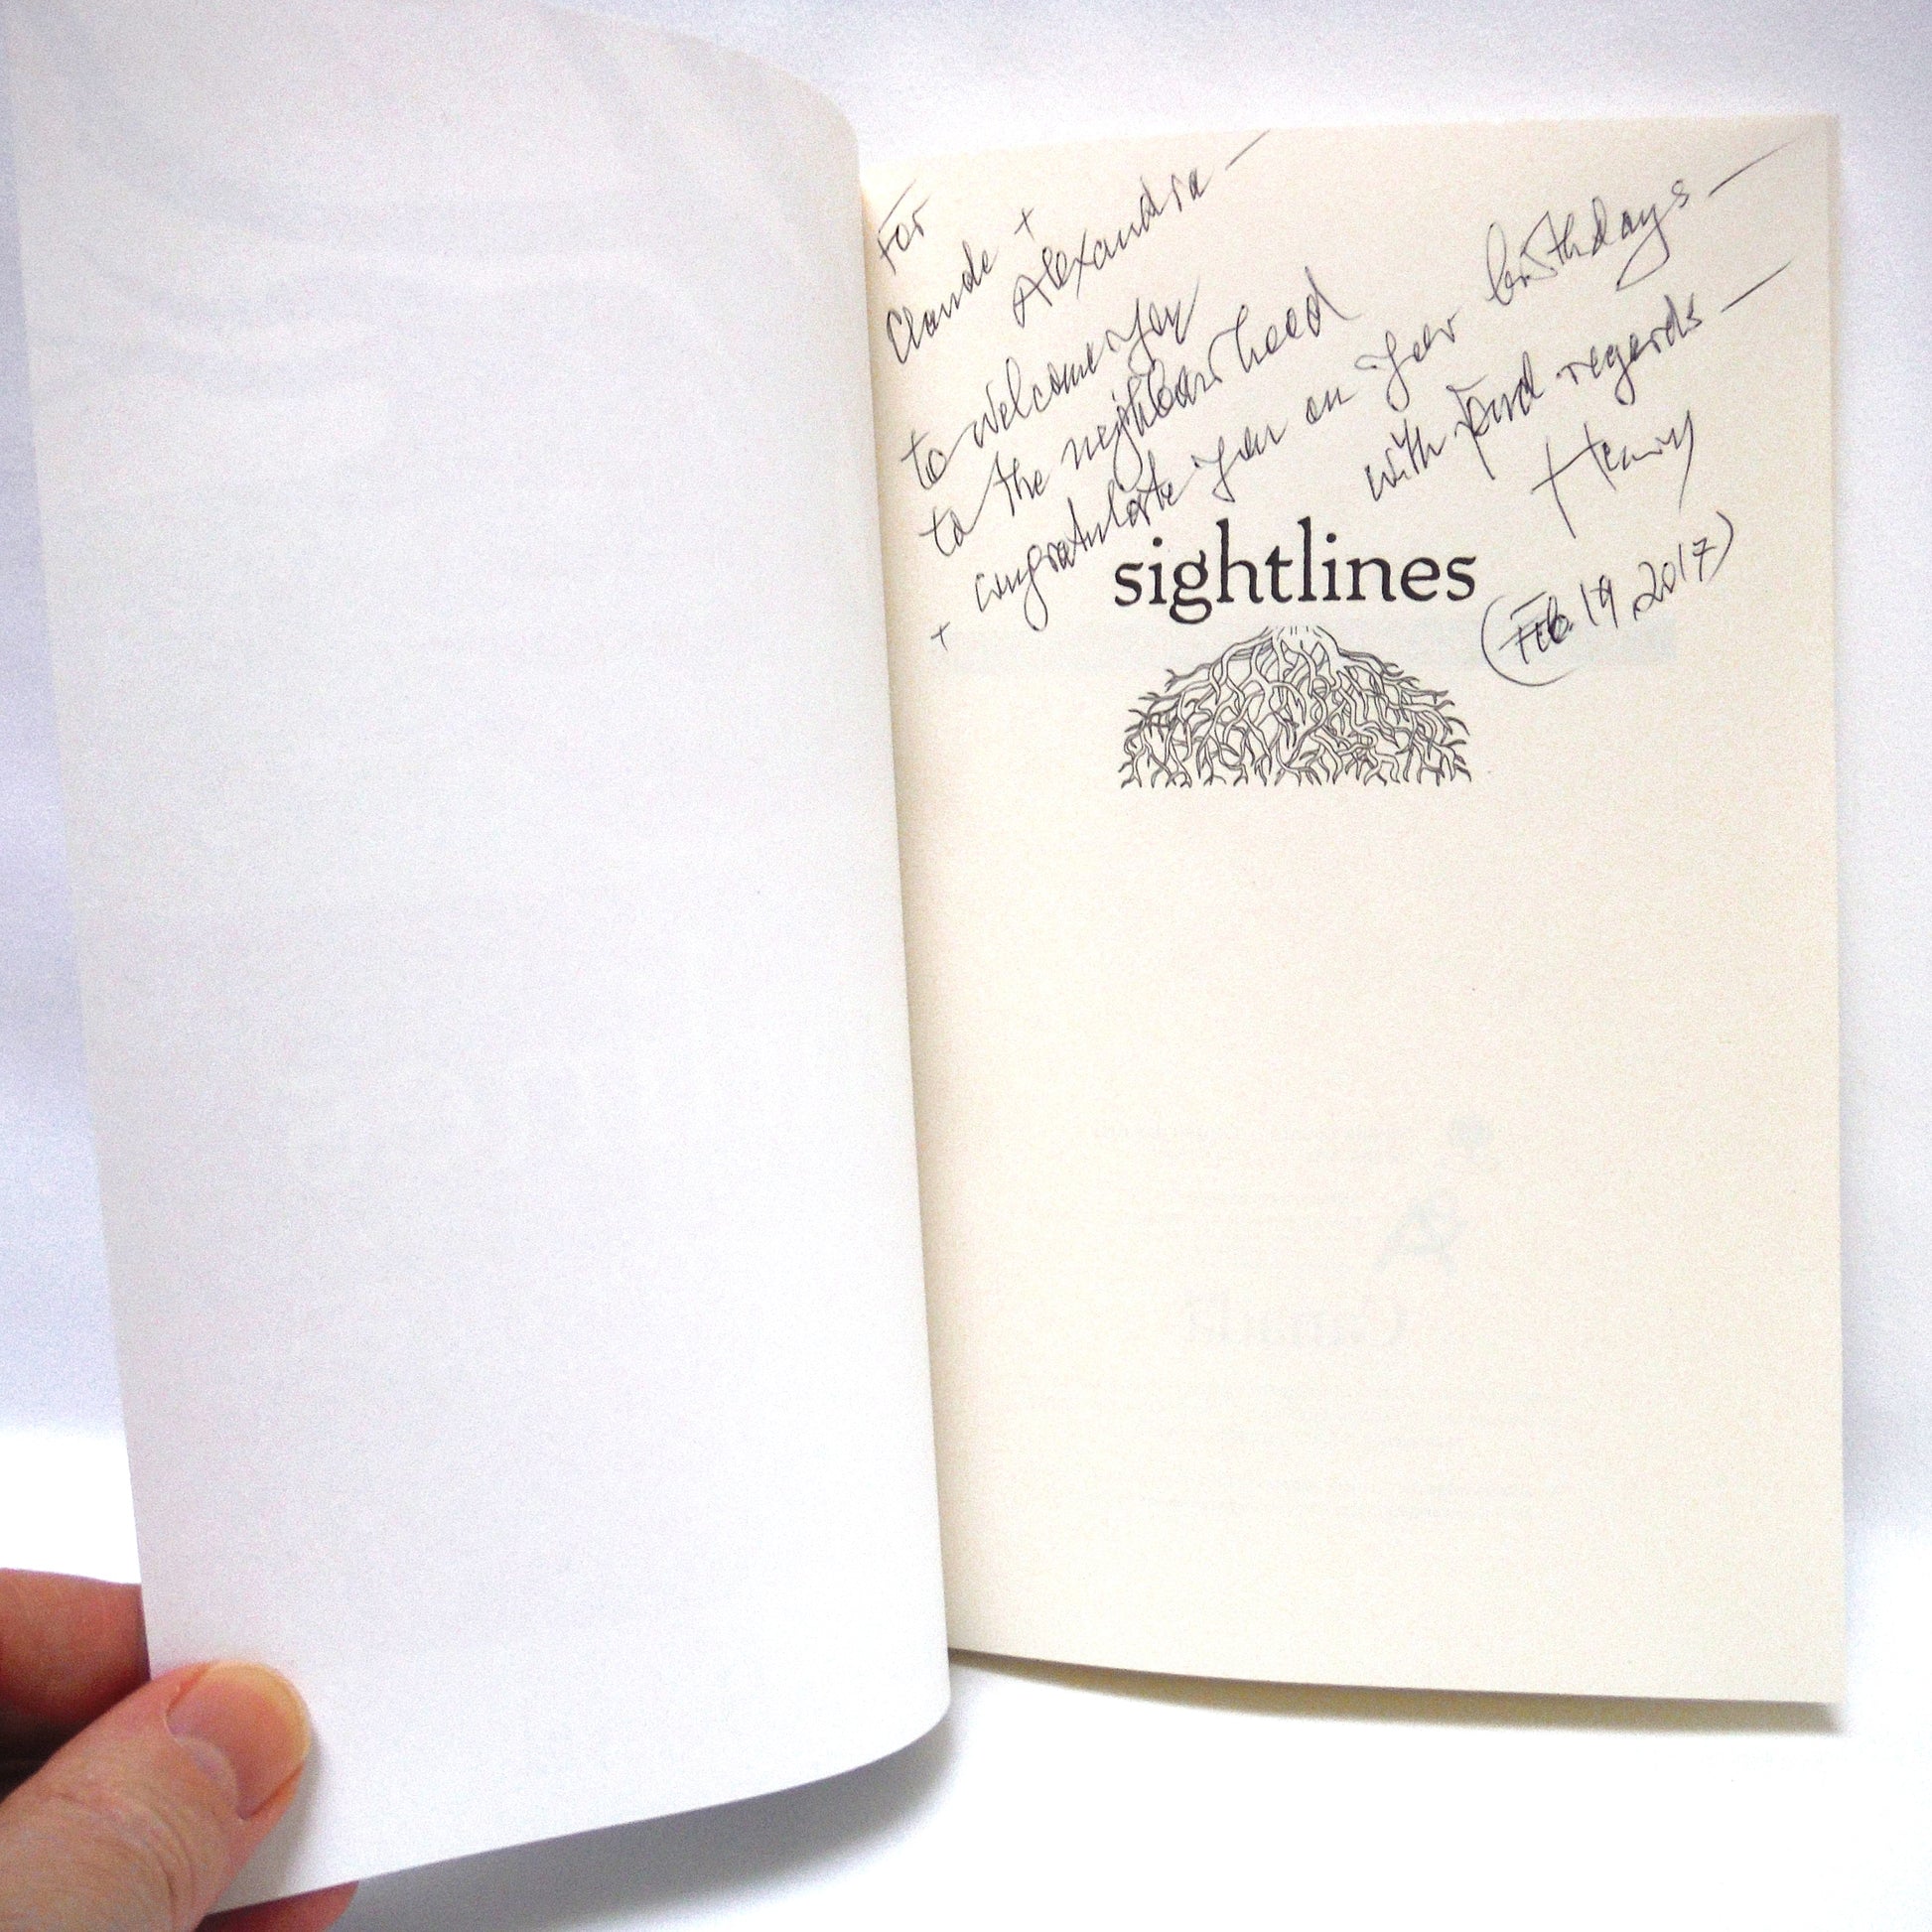 For
Claude +
Alexandria —
to welcome you
to the neighbourhood
+ congratulate you on your birthdays —
with kind regards —
Henry
(Feb. 19, 2017)
sightlines
Canada